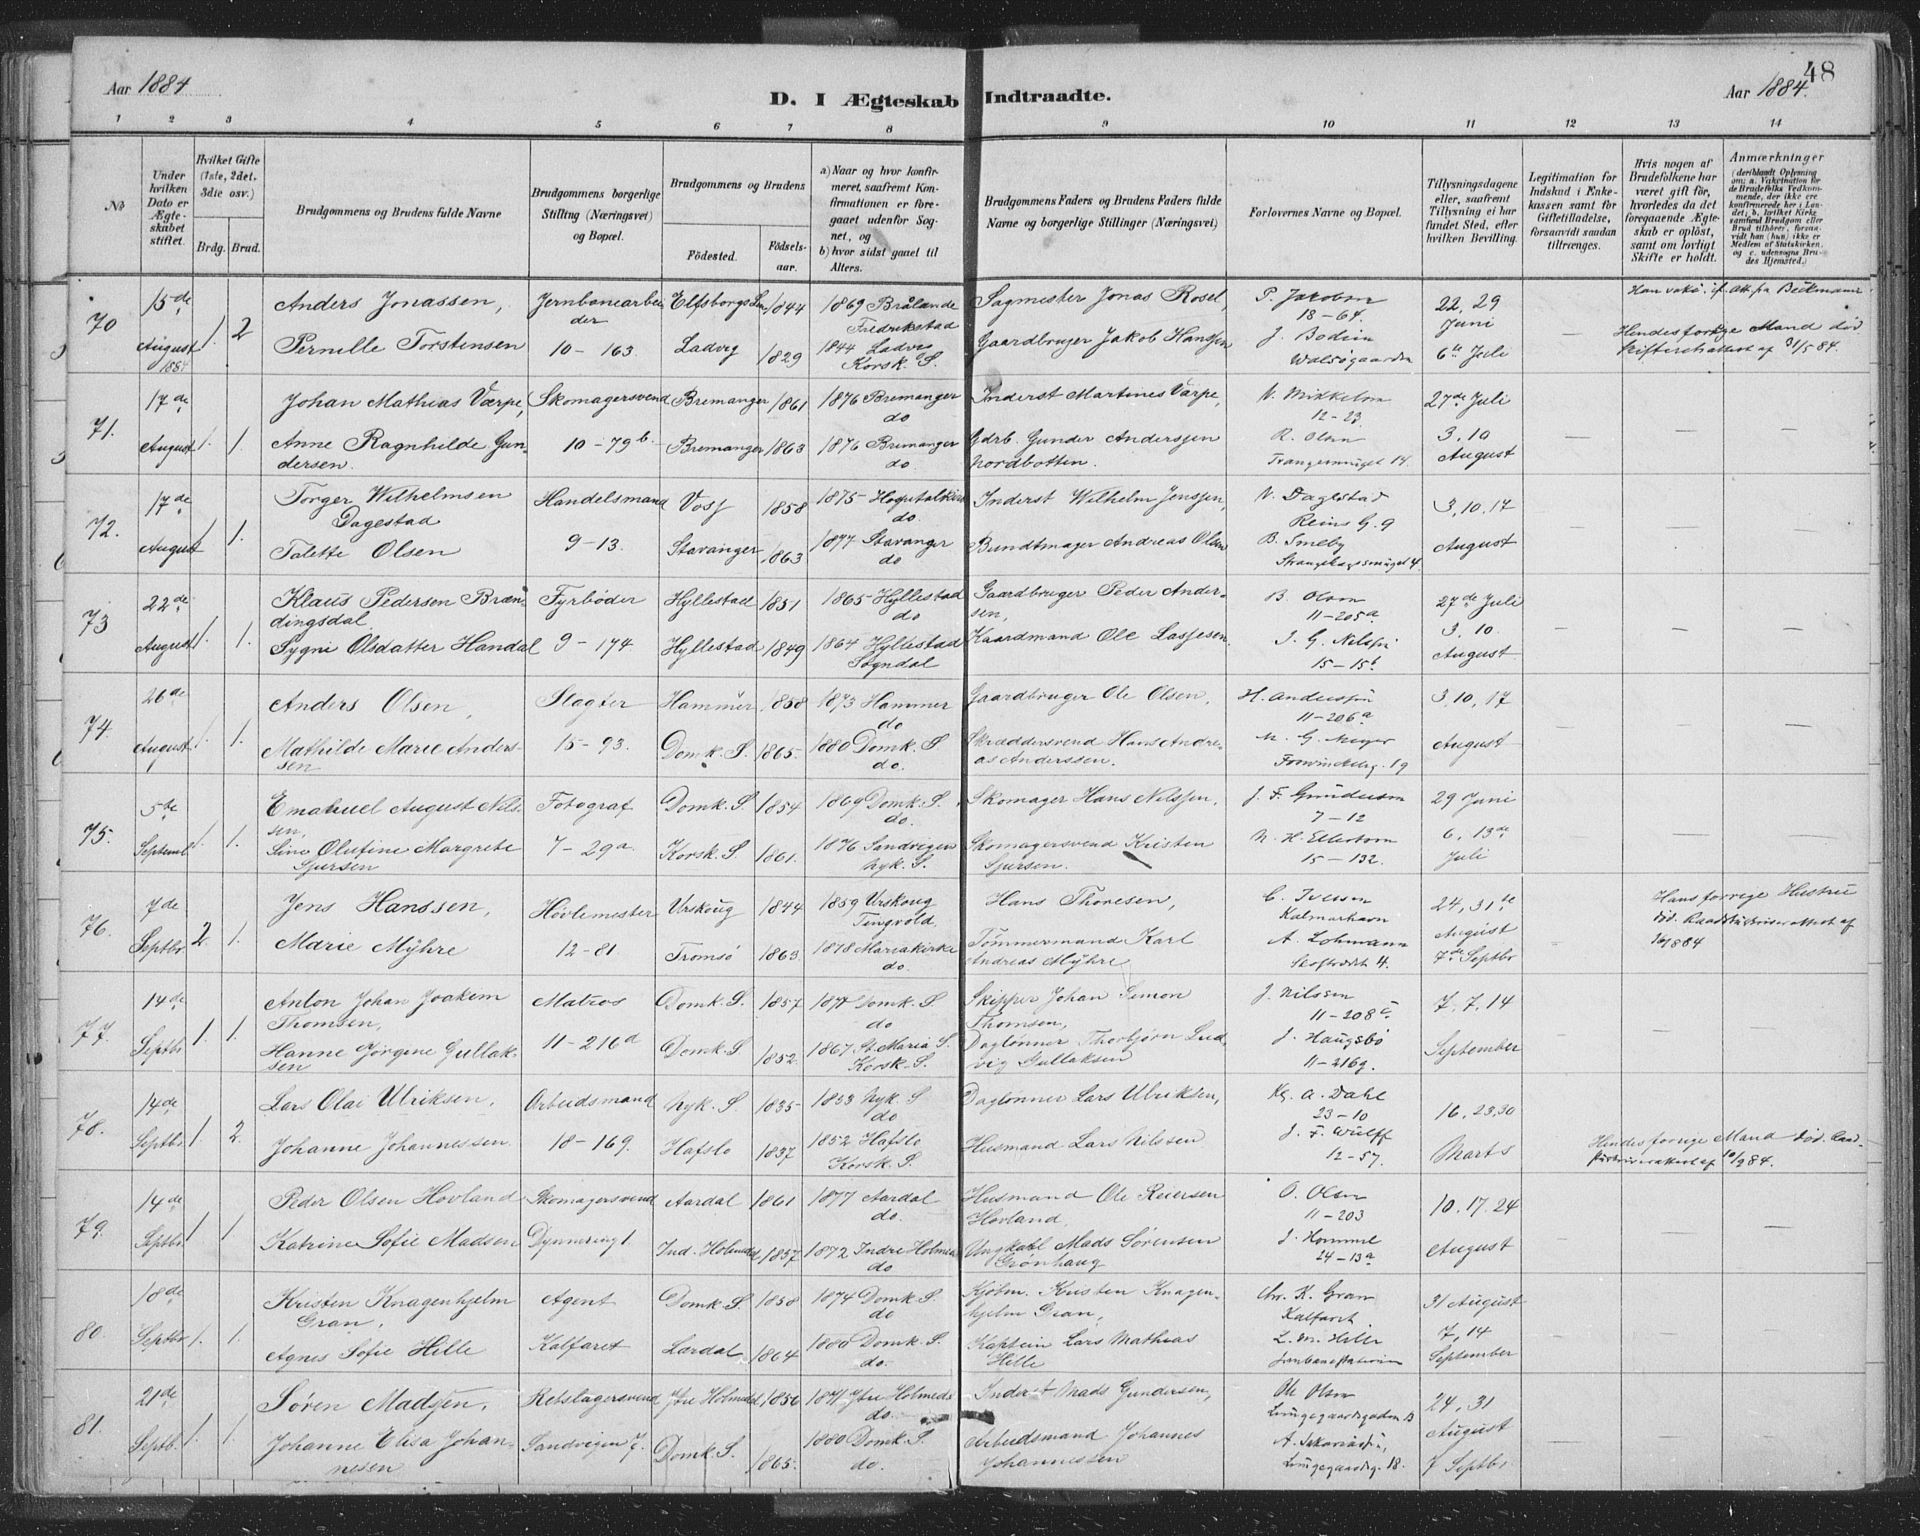 Aar 1884
D. I Ægteskab Indtraadte.
Aar 1884.
48
1 2 3 4 5 6 7 8 9 10 11 12 13 14
No
Under hvilken Dato er Ægteskabet stiftet.
Hvilket Gifte (1ste, 2det, 3die osv.)
Brdg. Brud.
Brudgommens og Brudens fulde Navne
Brudgommens borgerlige Stilling (Næringsvei) og Bopæl.
Brudgommens og Brudens
Födested.
Födselsaar.
a) Naar og hvor konfirmeret, saafremt Konfirmationen er foregaaet udenfor Sognet, og
b) hvor sidst gaaet til Alters.
Brudgommens Faders og Brudens Faders fulde Navne og borgerlige Stillinger (Næringsvei)
Forlovernes Navne og Bopæl.
Tillysningsdagene eller, saafremt Tillysning ei har fundet Sted, efter hvilken Bevilling.
Legitimation for Indskud i Enkekassen samt for Giftetilladelse, forsaavidt saadan tiltrænges.
Hvis nogen af Brudefolkene har været gift för, hvorledes da det foregaaende Ægteskab er oplöst, samt om lovligt Skifte er holdt.
Anmærkninger
(deriblandt Oplysning om: a. Vakcination for de Brudefolks Vedkommende, der ikke ere konfirmerede her i Landet; b. hvilket Kirkesamfund Brudgom eller Brud tilhörer, forsaavidt han (hun) ikke er Medlem af Statskirken, og c. udensogns Brudes Hjemsted.)
70 15de August 1884 1. 2
Anders Jonassen, Jernbanearbeider Elfsborgs Len 1844 1869 Brålanda Fredrikstad Sagmester Jonas Rosel, P. Jakobsen 18-64. 22, 29 Juni
Pernille Torstensen 10-163. Ladvig 1829 1844 Ladvig Korsk. S. Gaardbruger Jakob Hanssen J. Bodim 6te Juli
Hendes forrige Mand död Skifteretsattest af 31/5 84.
71. 17de August 1. 1.
Johan Mathias Varpe, Skomagersvend Bremanger 1861 1876 Bremanger do Inderst Martines Varpe, N. Mikkelsen 12-23 27de Juli
Anne Ragnhilde Gundersen. 10-79b. Bremanger 1863 1876 Bremanger do. Gdrb. Gunder Anderssen Nordbotten. R. Olsen 14. 3, 10 August
72. 17de August 1. 1.
Torger Wilhelmsen Dagestad Handelsmand Voss 1858 1875 Hospitalskirk do. Inderst Wilhelm Jenssen, N. Dagestad Reins G. 9 3, 10, 17
Talette Olsen 9-13. Stavanger 1863 1877 Stavanger do Bundtmager Andreas Olsen B. Smeby 4. August
73 22de August 1. 1.
Klaus Pedersen Brændingsdal, Fyrbøder Hyllestad 1851 1865 Hyllestad do Gaardbruger Peder Andersen, B. Olsen 11-205a 27de Juli
Sygni Olsdatter Handal 9-174. Hyllestad 1849 1864 Hyllestad Sogndal Gaardmand Ole Lassesen. J. G. Nilssen 15-15b 3. 10. August
74. 26de August 1. 1.
Anders Olsen, Slagter Hammer 1858 1873 Hammer do Gaardbruger Ole Olsen, H. Anderssen 11-206a 3, 10, 17
Mathilde Marie Anderssen 15-93. Domk. S. 1865. 1880 Domk. S do. Skræddersvend Hans Andreas Anderssen. M. G. Meyer 19 August
75. 5te Septembr 1. 1.
Emanuel August Nilssen, Fotograf Domk. S. 1854 1869 Domk. S. do. Skomager Hans Nilssen, J. F. Gundersen 7-12 29 Juni
Sine Olufine Margrete Sjursen 7-29a Korsk. S. 1861. 1876 Sandvigen Nyk. S. Skomagersvend Kristen Sjursen. N. H. Ellertsen 15-132. 6, 13de Juli
76. 7de Septbr 2. 1.
Jens Hanssen, Høvlemester Urskoug 1844 1859 Urskoug Tingvold. Hans Thoresen, C. Iversen Kalmarhavn 24, 31te August
Marie Mÿhre 12-81. Tromsö 1863. 1878 Mariakirke do. Tömmermand Karl Andreas Mÿhre A. Lohmann 4. 7de Septbr
Hans forrige Hustru död.
77. 14de Septbr 1. 1.
Anton Johan Joakem Thomsen, Matros Domk. S. 1857 1871 Domk. S. do Skipper Johan Simon Thomsen, J. Nilssen 11-208c 7. 7. 14
Hanne Jørgine Gullaksen 11-216d Domk. S 1852. 1867 St. Maria S. Korsk. S. Daglønner Thorbjørn Ludvig Gullaksen J. Haugsbö 11-216g. September
78. 14de Septbr 1. 2.
Lars Olai Ulriksen, Arbeidsmand Nyk. S. 1835 1853 Nyk. S do Daglønner Lars Ulriksen, A. Dahl 23-10 16, 23, 30
Johanne Johannessen. 18-169. Hafslo 1837 1852 Hafslo Korsk. S. Husmand Lars Nilssen J. F. Wulff 12-57. Marts
Hendes forrige Mand död.
79. 14de Septbr 1 1
Peder Olsen Hovland Skomagersvend Aardal 1861 1877 Aardal do. Husmand Ole Reiersen Hovland, O. Olsen 11-203 10. 17. 24
Katrine Sofie Madsen Ind. Holmedal 1857 1872 Indre Holmedal do Ungkahl Mads Sørensen Grønhaug J. Hommel 24-13a August
80. 10de Septbr 1. 1.
Kristen Knagenhjelm Gran, Agent Domk. S. 1858 1874 Domk. S. do Kjøbm. Kristen Knagenhjelm Gran, Chr. K. Gran Kalfaret 31 August
Agnes Sofie Hille Kalfaret Lærdal 1864 1880 Domk. S. do. Kaptein Lars Mathias Hille L. M. Hille Jernbanestationen 7, 14 September
81. 21de Septb. 1. 1.
Søren Madssen, Rebslagersvend Ytre Holmedal 1856 1871 Ytre Holmedal do. Inderst Mads Gundersen, Ole Olsen 24, 31 August
Johanne Elisa Johannesen Sandvigen 7. Domk. S. 1865. 1880 Domk. S. do. Arbeidsmand Johannes Johannessen 18. 7 Septbr